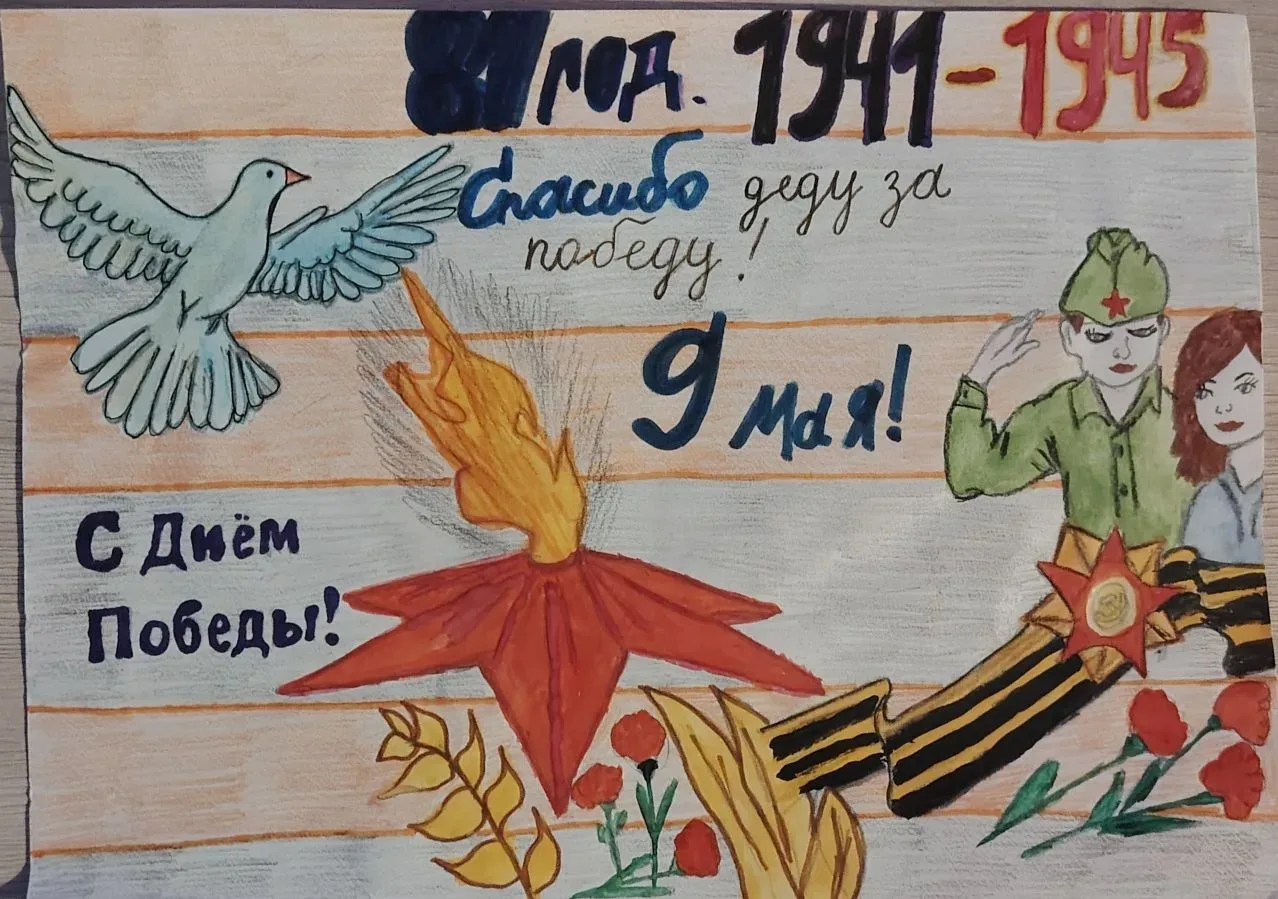 81 год. 1941-1945
Спасибо деду за
победу!
9 мая!
С Днём
Победы!